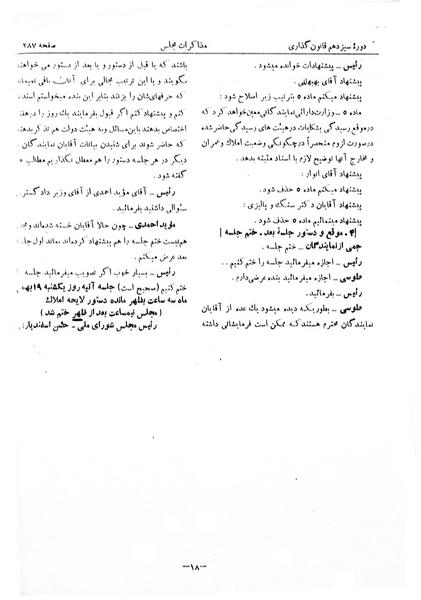 دورهٔ سیزدهم قانون گذاری
مذاکرات مجلس
صفحه ۲۸۷
رئیس ـ پیشنهادات خوانده میشود.
پیشنهاد آقای بهبهانی:
پیشنهاد میکنم ماده ۵ بترتیب زیر اصلاح شود:
ماده ۵ ـ وزارت دارائی نمایندگانی معین خواهد کرد که
در موقع رسیدگی بشکایات در هیئت های رسیدگی حاضر شده
در صورت لزوم منحصراً در چگونگی وضعیت املاک و عمران
و مخارج آنها توضیح لازم با اسناد مثبته بدهد.
پیشنهاد آقای انوار:
پیشنهاد میکنم ماده ۵ حذف شود.
پیشنهاد آقایان دکتر سنگ و پالیزی:
پیشنهاد مینمائیم ماده ۵ حذف شود.
[۴ـ موقع و دستور جلسهٔ بعد ـ ختم جلسه]
جمعی از نمایندگان ـ ختم جلسه.
رئیس ـ اجازه میفرمائید جلسه را ختم کنیم..
طوسی ـ اجازه میفرمائید بنده عرضی دارم.
رئیس ـ بفرمائید.
طوسی ـ بطوریکه دیده میشود یک عده از آقایان
نمایندگان محترم هستند که ممکن است فرمایشاتی داشته
باشند که یا قبل از دستور و یا بعد از دستور می خواهند
بگویند و با این ترتیب مجالی برای آقایان باقی نمیماند
که حرفهایشان را بزنند بنابر این بنده میخواستم استدعا
و پیشنهاد کنم اگر قبول بفرمایند یک روز را در هفته
اختصاص بدهند باین مسائل و به هیئت دولت هم تذکر بدهند
که حاضر شوند برای شنیدن بیانات آقایان نمایندگان که
دیگر در هر جلسه دستور را هم معطل نگذاریم مطالب هم
گفته شود.
رئیس ـ آقای مؤید احمدی از آقای وزیر دادگستری
سئوالی داشتید بفرمائید.
مؤید احمدی ـ چون حالا آقایان خسته شده‌اند و
هم نیست ختم جلسه را هم پیشنهاد کرده‌اند بماند اول جلسه
بعد عرض میکنم.
رئیس ـ بسیار خوب اگر تصویب میفرمائید جلسه را
ختم کنیم (صحیح است) جلسه آتیه روز یکشنبه ۱۹ بهمن
ماه سه ساعت بظهر مانده دستور لایحه املاک
(مجلس نیمساعت بعد از ظهر ختم شد)
رئیس مجلس شورای ملی ـ حسن اسفندیاری
ـ۱۸ـ